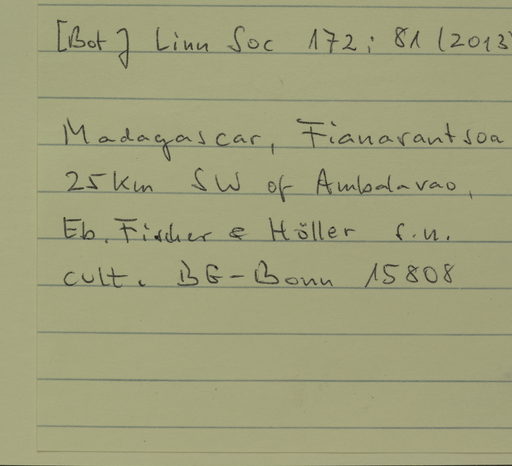 [Bot] Linn Soc 172; 81 (2013
Madagascar, Fianarantsoa
25 km SW of Ambalavao,
Eb. Fischer & Höller s.n.
cult. BG-Bonn 15808